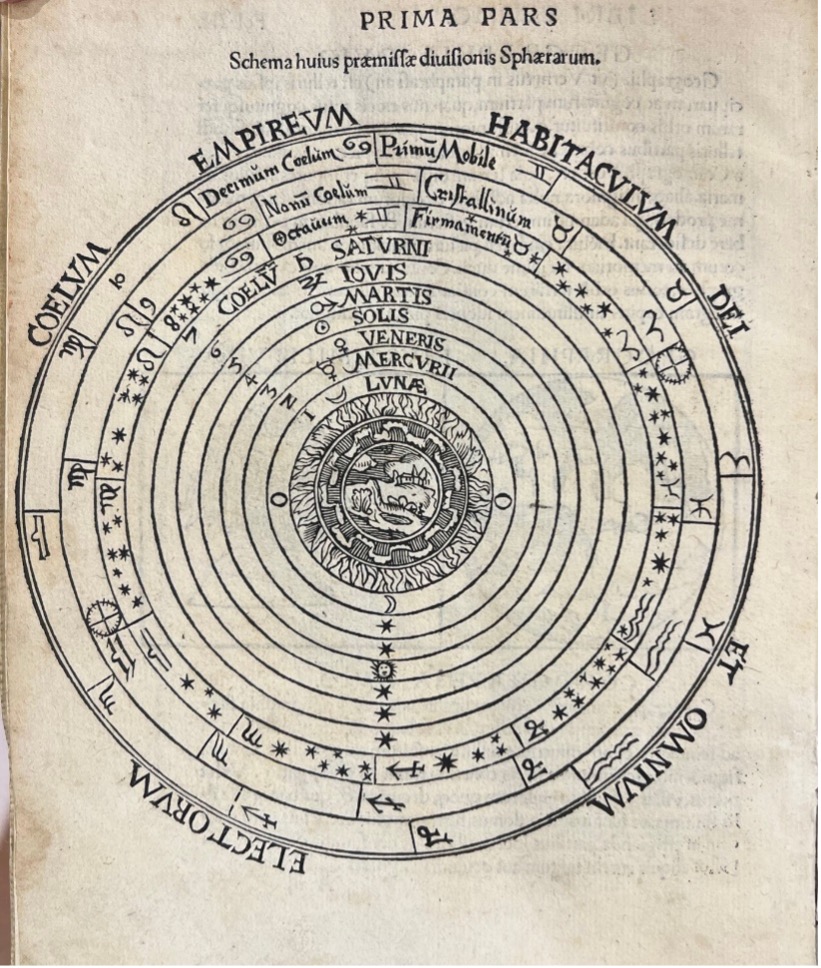 PRIMA PARS
Schema huius præmiſſæ diuiſionis Sphærarum.
COELVM EMPIREVM HABITACVLVM DEI ET OMNIVM ELECTORVM
Decimum Coelum ♋ Primū Mobile ♊
Nonū Coelum ♊ Criſtallinum ♉
Octauum ♊ Firmamentū ♉
COELV̄ ♄ SATVRNI
♃ IOVIS
♂ MARTIS
☉ SOLIS
♀ VENERIS
☿ MERCVRII
☽ LVNÆ
8
7
6
5
4
3
2
1